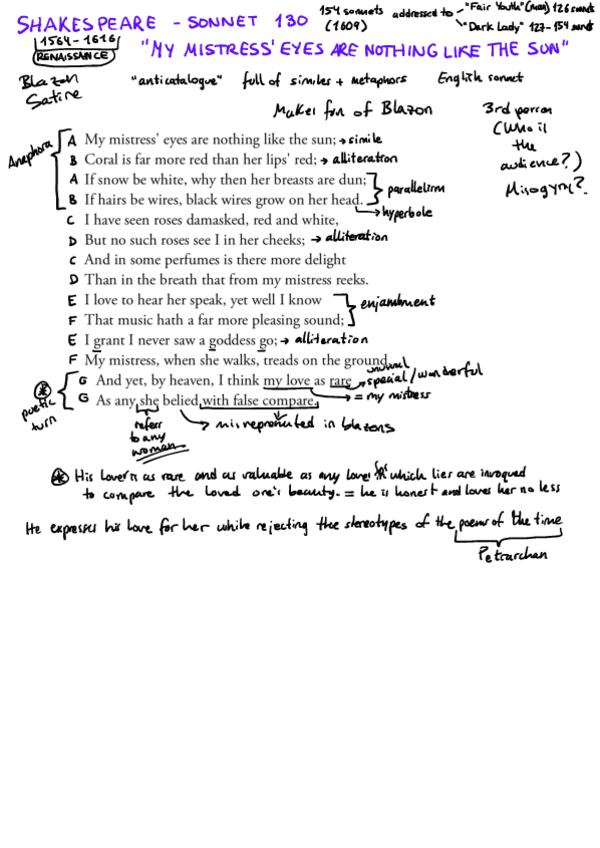 SHAKESPEARE - SONNET 130
154 sonnets addressed to - "Fair Youth" (man) 126 sonets
(1609) "Dark Lady" 127-154 sonets
1564-1616
RENAISSANCE
"MY MISTRESS' EYES ARE NOTHING LIKE THE SUN"
Blazon "anticatalogue" full of similes + metaphors English sonnet
Satire
Makes fun of Blazon
3rd person
(Who is
the
audience?)
Misogyny?
Anaphora
A My mistress' eyes are nothing like the sun; → simile
B Coral is far more red than her lips' red; → alliteration
A If snow be white, why then her breasts are dun;
parallelism
B If hairs be wires, black wires grow on her head.
→ hyperbole
C I have seen roses damasked, red and white,
D But no such roses see I in her cheeks; → alliteration
C And in some perfumes is there more delight
D Than in the breath that from my mistress reeks.
E I love to hear her speak, yet well I know
enjambment
F That music hath a far more pleasing sound;
E I grant I never saw a goddess go; → alliteration
F My mistress, when she walks, treads on the ground.
unusual
G And yet, by heaven, I think my love as rare → special/wonderful
= my mistress
G As any she belied with false compare.
poetic
turn
refers
to any
woman
→ misrepresented in blazons
His lover is as rare and as valuable as any lover which lies are invoqued
to compare the loved one's beauty. = he is honest and loves her no less
He expresses his love for her while rejecting the stereotypes of the poems of the time
Petrarchan